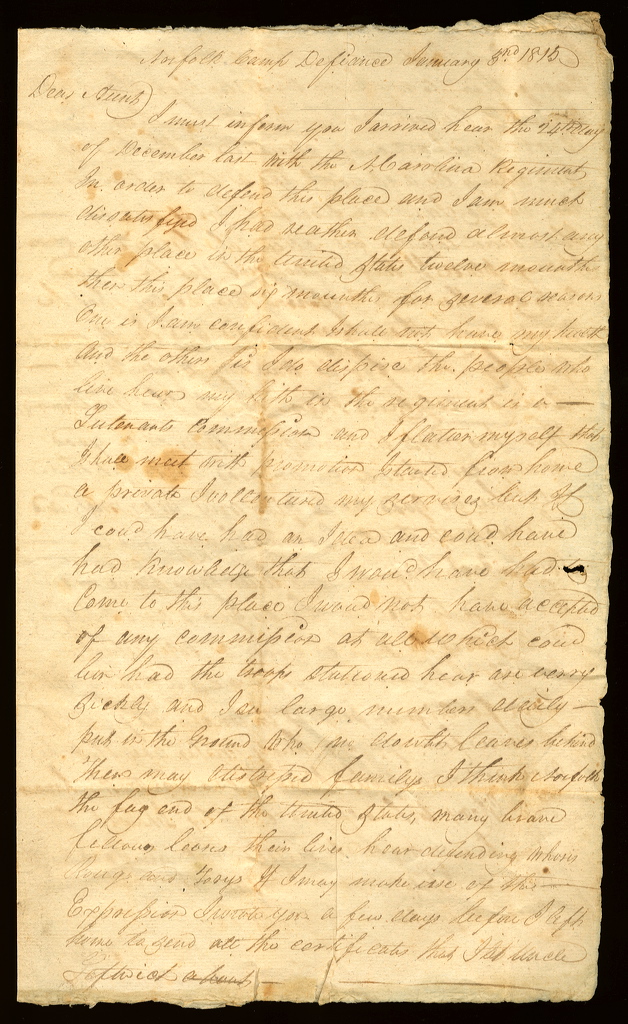 Norfolk Camp Defiance January 3rd 1815
Dear Aunt
I must inform you I arrived hear the 24th day
of December last with the N. Carolina Regiment
In order to defend this place and I am much
disatisfied I had reather defend almost any
other place in the United States twelve mounths
then this place six mounths for several reasons
One is I am confident I shall not have my health
And the others is I do dispise the people who
live hear my
in the regiment is a
Lutenants Commission and I flatter myself that
I shall meet with promotion I started from home
a private I volentured my services but If
I coud have had an Idea and coud have
had knowledge that I woud have had to
Come to this place I woud not have accepted
of any commission at all which coud
been had the troops stationed hear are verry
sickly and I see large numbers daily
put in the Ground who no doubts leaves behind
Them may distresed familys I think Norfolk
the fag end of the United States, many brave
fellows loose their lives hear defending whors
Rougs and Torys If I may make use of the
Expression I wrote you a few days before I left
home to send all the certificates that I let Uncle
about